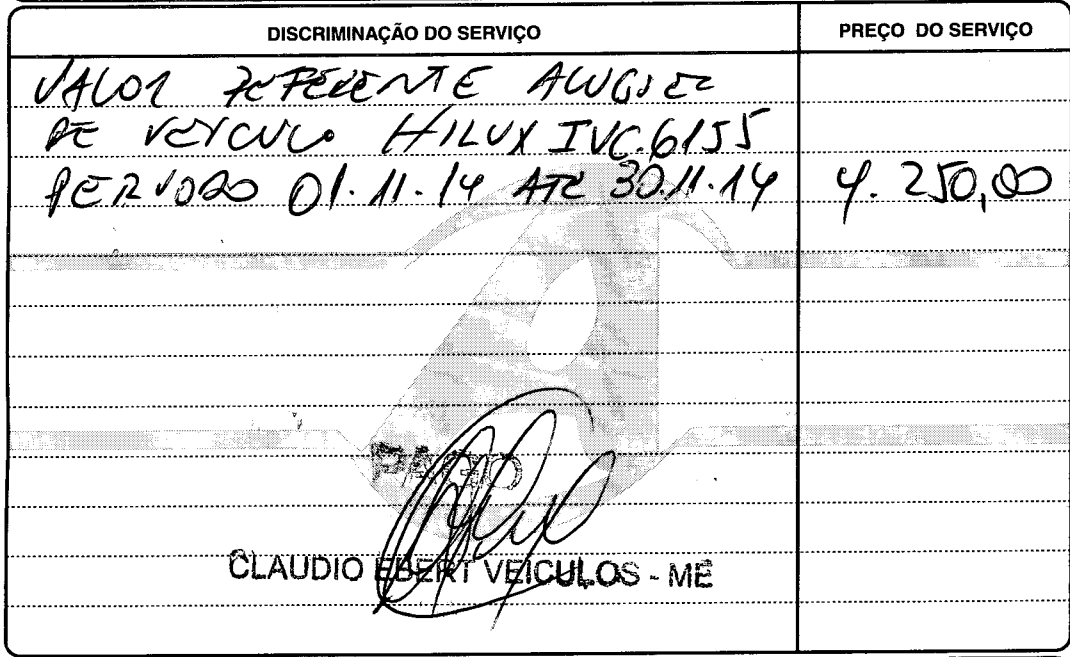 DISCRIMINAÇÃO DO SERVIÇO PREÇO DO SERVIÇO
VALOR REFERENTE ALUGUEL
DE VEICULO HILUX IVC.6155
PERIODO 01.11.14 ATE 30.11.14 4.250,00
PAGO
CLAUDIO EBERT VEICULOS - ME